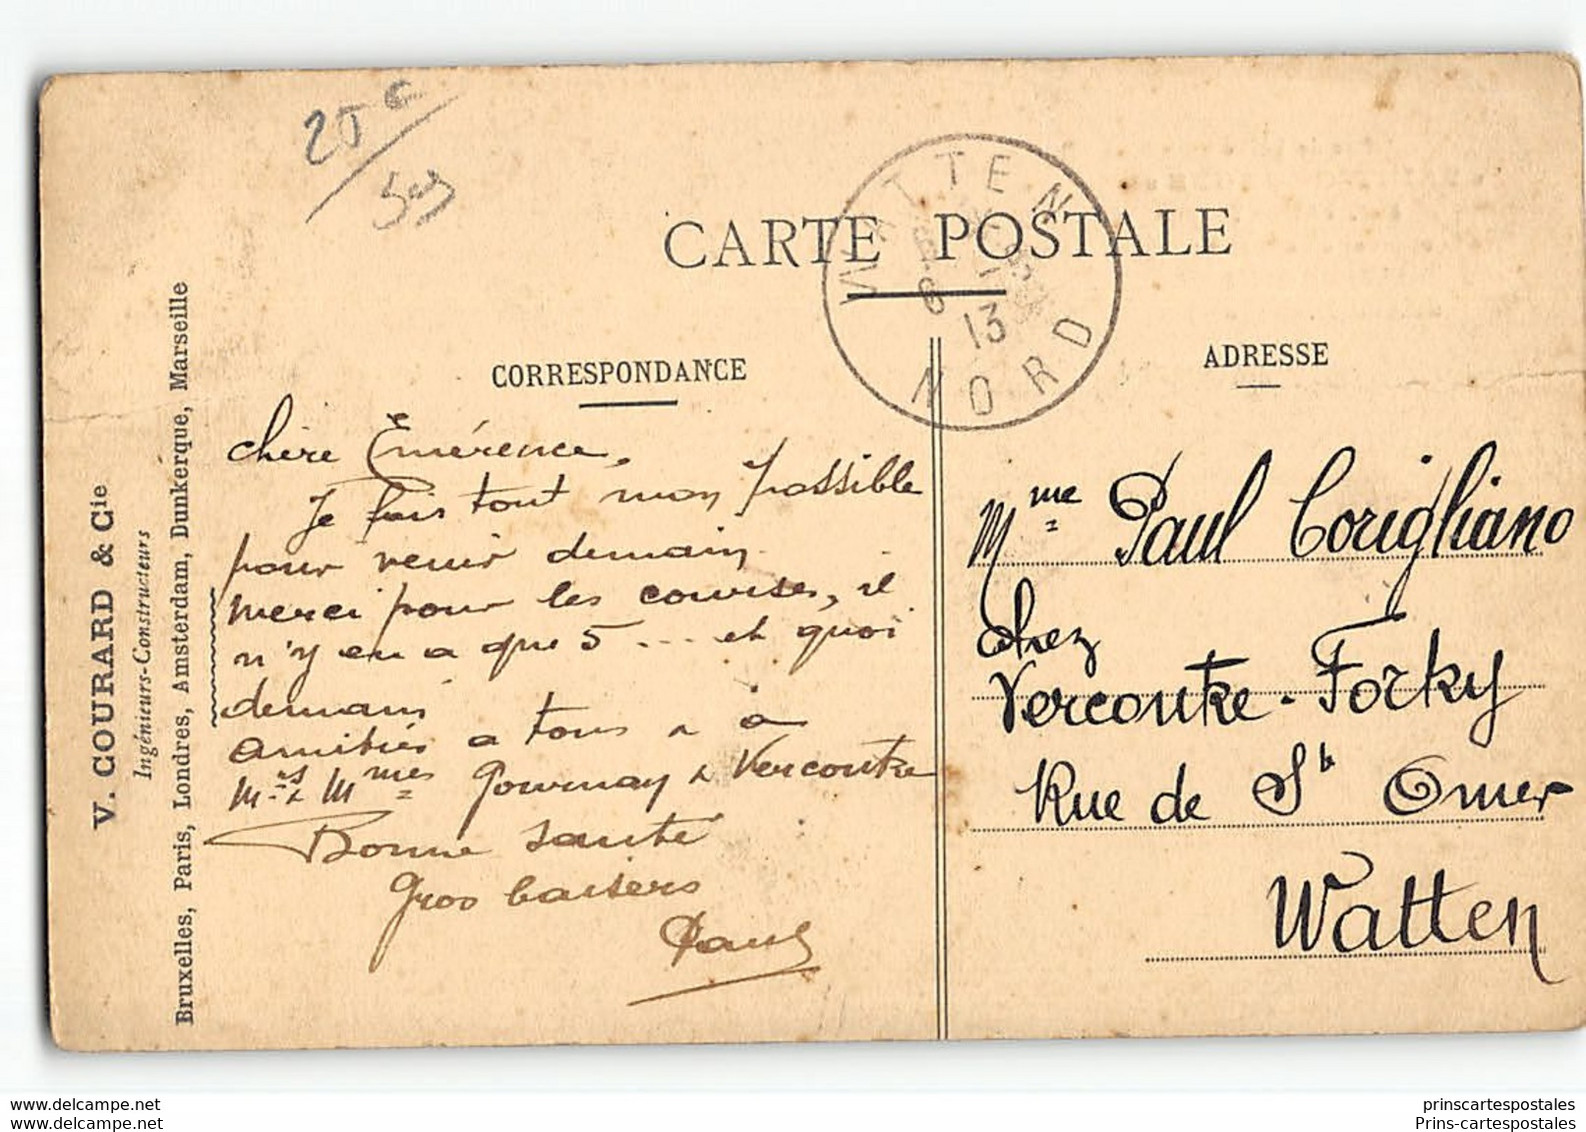 25 €
509
CARTE POSTALE
WATTEN
13
NORD
CORRESPONDANCE
ADRESSE
V. COURARD & Cie
Ingénieurs-Constructeurs
Bruxelles, Paris, Londres, Amsterdam, Dunkerque, Marseille
chère Emérence,
Je fais tout mon possible
pour venir demain.
merci pour les courses, il
n'y en a que 5 ... et quoi
demain
amitiés a tous & à
Mrs & Mmes Gournay & Verconttre
Bonne santé
Gros baisers
Paul
Mme Paul Corigliano
chez
Vercoutre-Forky
Rue de St Omer
Watten
www.delcampe.net
www.delcampe.net
prinscartespostales
Prins-cartespostales